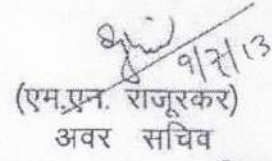 9/7/13
(एम.एन. राजूरकर)
अवर सचिव